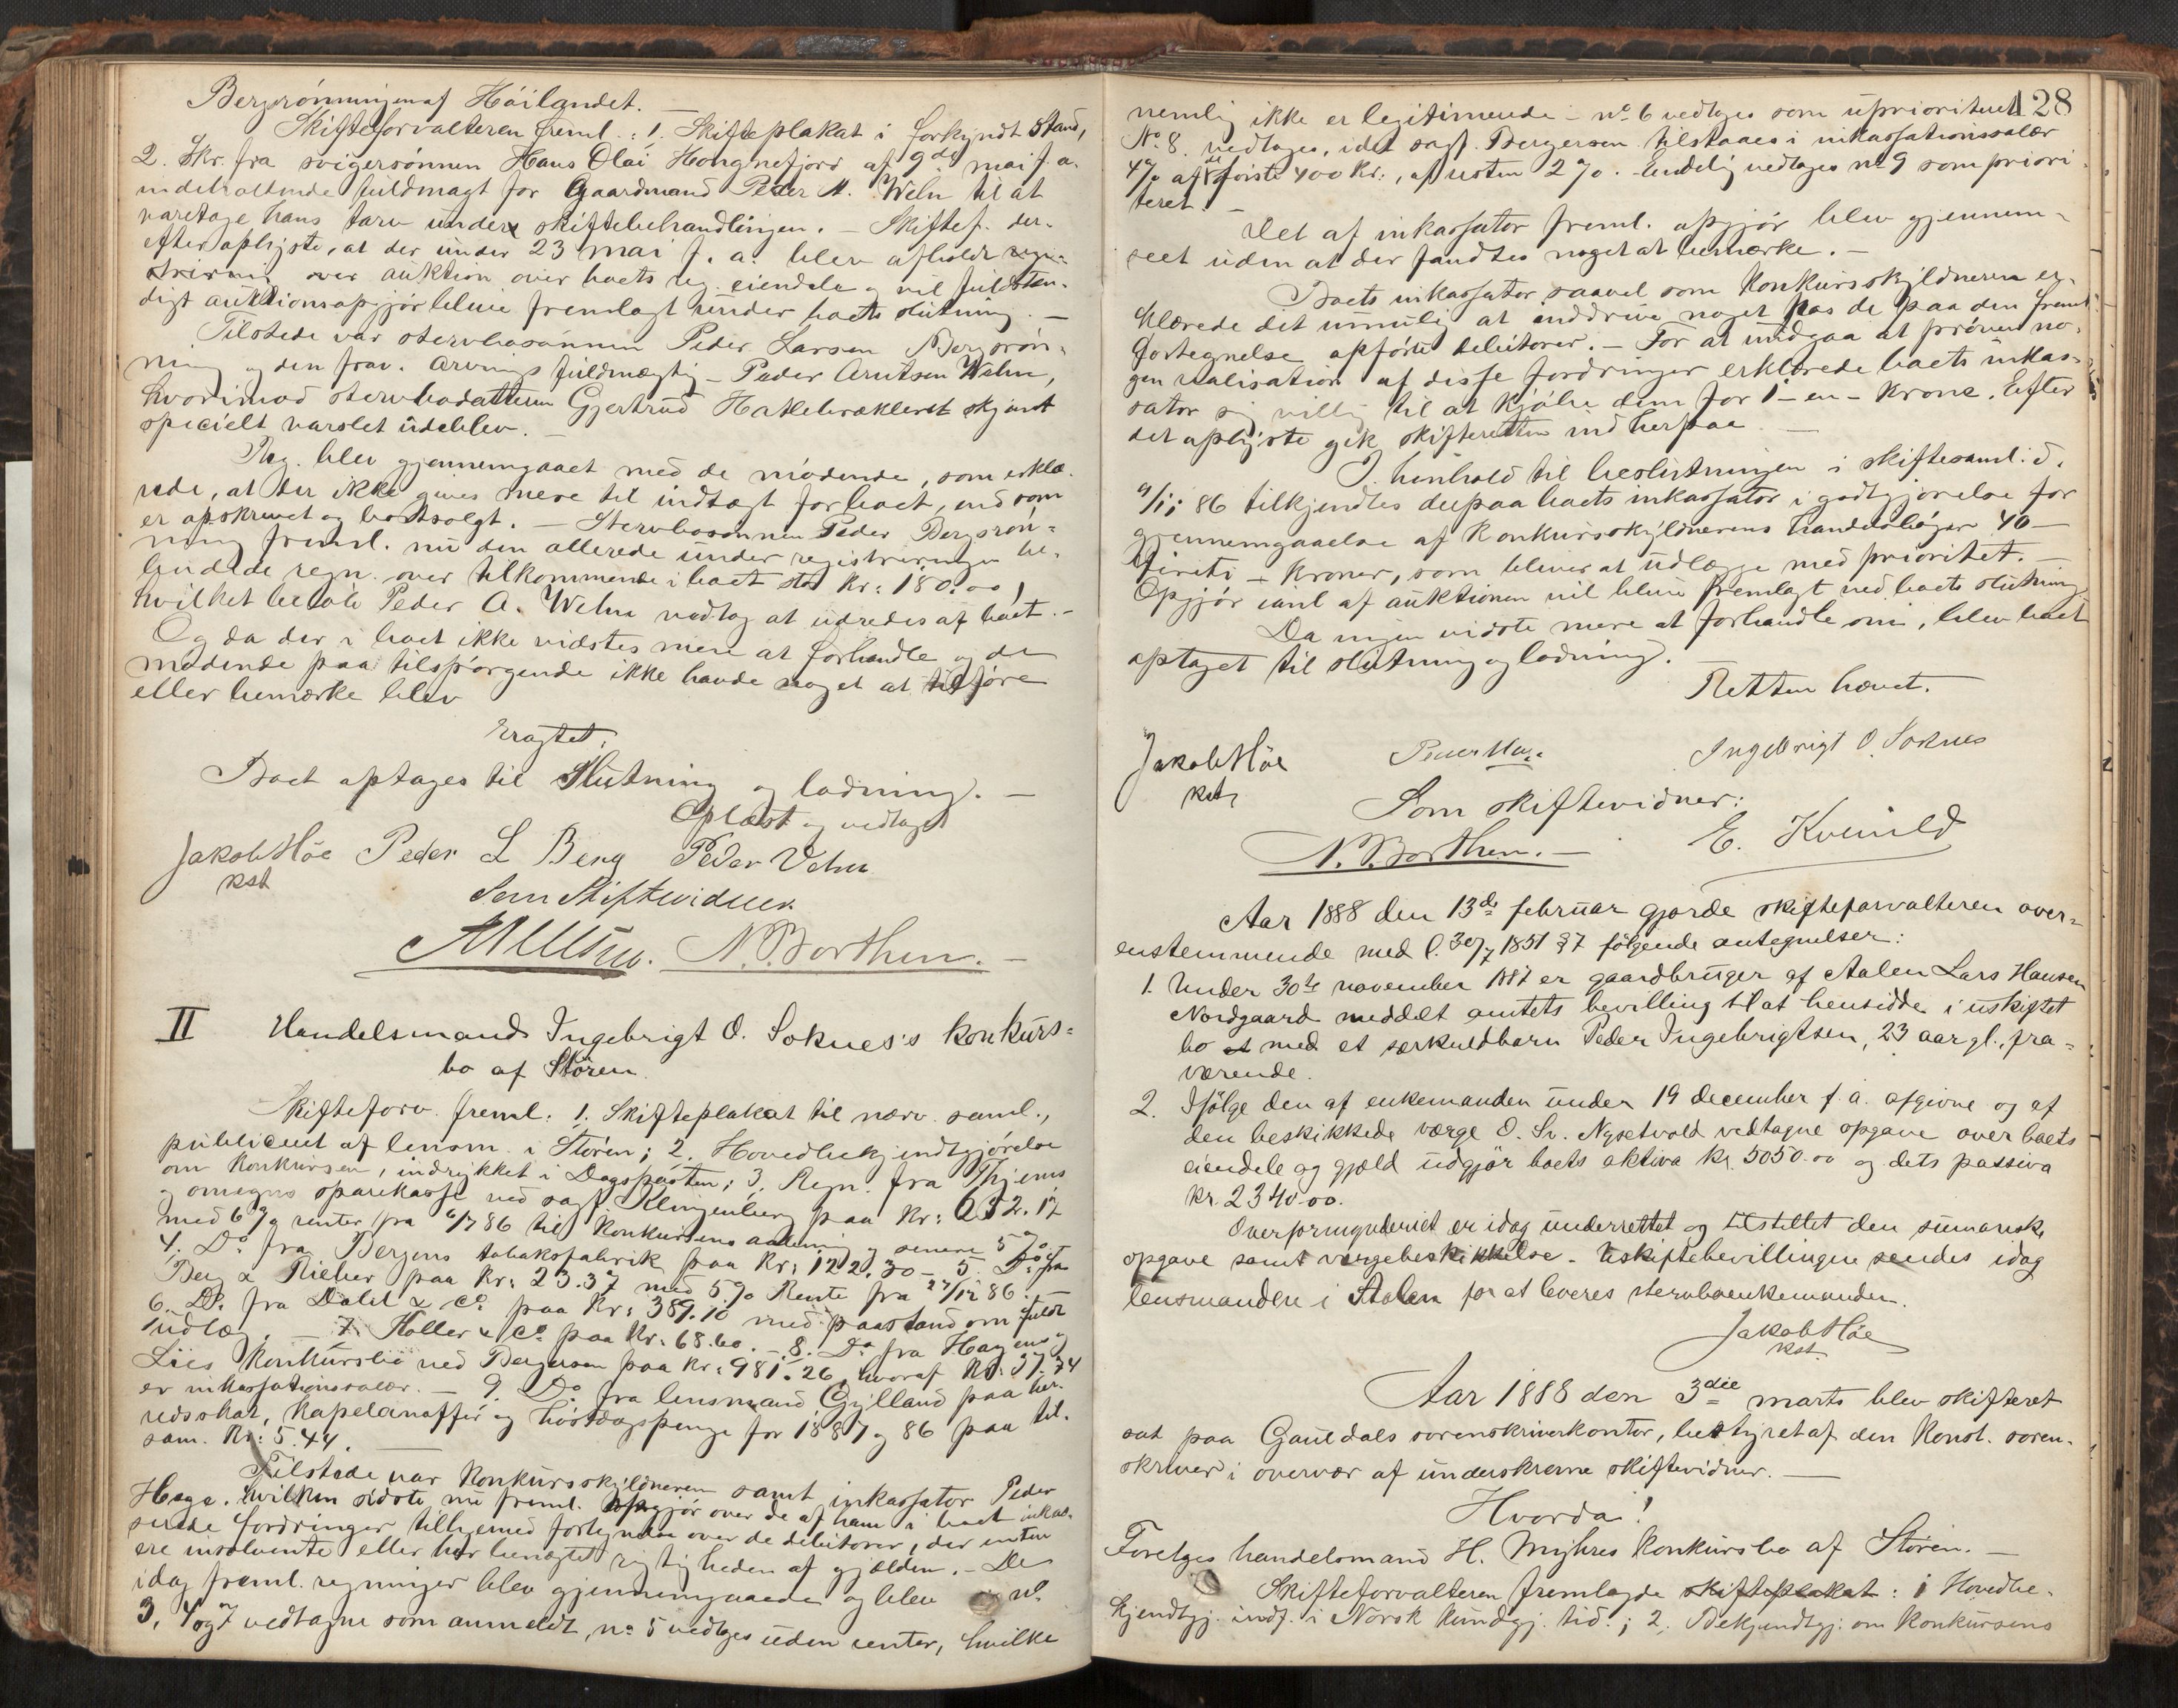 Bergrönningen af Höilandet. —
Skifteforvalteren freml.: 1. Skifteplakat i forkyndt Stand,
2. Skr. fra svigersönnen Hans Olai Hongnefjord af 9de mai f. a.
indeholdende fuldmagt for Gaardmand Peder A. Weln til at
varetage hans tarv under skiftebehandlingen. — Skiftef. der-
efter oplyste, at der under 23 mai f. a. blev afholdt regi-
strering over auktion over boets reg. eiendele og vil fuldstæn-
digt auktionsopgjör blive fremlagt under boets slutning. —
Tilstede var stervbosönnen Peder Larsen Bergrön-
ning og den frav. arvings fuldmægtig — Peder Arntsen Weln,
hvorimod stervbodatteren Gjertrud Hatlebrækleret skjönt
specielt varslet udeblev. —
Reg. blev gjennemgaaet med de mödende, som erklæ-
rede, at der ikke gives mere til indtægt for boet, end som
er opskrevet og bortsolgt. — Stervbosönnen Peder Bergrön-
ning freml. nu den allerede under registreringen be-
budede regn. over tilkommende i boet stor Kr: 180.00,
hvilket belöb Peder A. Weln vedtog at udredes af boet. —
Og da der i boet ikke vidstes mere at forhandle og de
mödende paa tilspörgende ikke havde noget at tilföre
eller bemærke blev
eragtet:
Boet optages til Slutning og lodning. —
Oplæst og vedtaget
Jakob Höe Peder L Berg Peder Veln
kst
Som Skiftevidner
N. Borthen. —
II Handelsmand Ingebrigt O. Soknes's konkurs-
bo af Stören.
Skifteforv. freml: 1. Skifteplakat til nærv. saml.,
publiceret af lensm. i Stören; 2. Hovedbekjendtgjörelse
om Konkursen, indrykket i Dagsposten; 3. Regn. fra Thjems
og omegns sparekasse ved sagf. Klingenberg paa Kr: 652.17
med 6 % renter fra 6/7 86 til Konkursens aabning og senere 5 %
4. Do fra Bergens tobaksfabrik paa Kr: 122.30 — 5. Do fra
Berg & Rieber paa Kr: 23.37 med 5 % Rente fra 27/12 86. —
6. Do. fra Dahl & Co paa Kr: 389.10 med paastand om fuldt
udlæg. — 7. Holler & Co paa Kr: 68.60. — 8. Do fra Hagens og
Liies Konkursbo ved Bergersen paa Kr: 981.26, hvoraf Kr: 37.74
er inkassationssalær. — 9. Do. fra lensmand Gylland paa her-
redsskat, kapelanoffer og höstdagspenge for 1887 og 86 paa til-
sam. Kr: 5.44. —
Tilstede var Konkursskyldneren samt inkassator Peder
Haga. hvilken sidste nu freml. opgjör over de af ham i boet inkas-
serede fordringer tilligemed fortegnelse over de debitorer, der enten
ere insolvente eller har benægtet rigtigheden af gjælden. — De
idag freml. regninger blev gjennemgaaede og blev no.
3, 4 og 7 vedtagne som anmeldt, no 5 vedtages uden renter, hvilke
128
nemlig ikke er legitimerede — no 6 vedtages som uprioriteret
No 8. vedtages, idet sagf. Bergersen tilstaaes i inkassationssalær
4 % af de förste 400 Kr:, af resten 2 %. Endelig vedtages no 9 som priori-
teret. —
Det af inkassator freml. opgjör blev gjennem-
seet uden at der fandtes noget at bemærke. —
Boets inkassator saavel som Konkursskyldneren er-
klærede det umulig at inddrive noget hos de paa den freml.
fortegnelse opförte debitorer. — For at undgaa at pröven no-
gen realisation af disse fordringer erklærede boets inkas-
sator sig villig til at kjöbe dem for 1 — en — Krone. Efter
det oplyste gik skifteretten ind herpaa. —
I henhold til beslutningen i skiftesaml. d.
9/11 86 tilkjendtes derpaa boets inkassator i godtgjörelse for
gjennemgaaelse af Konkursskyldnerens handelsböger 40 —
firti — Kroner, som bliver at udlægge med prioritet. —
Opgjör iaml. af auktionen vil blive fremlagt ved boets slutning
Da ingen vidste mere at forhandle om, blev boet
optaget til slutning og lodning. —
Retten hævet.
Jakob Höe Peder Haga Ingebrigt O. Soknes
kst.
Som skiftevidner:
N. Borthen. — E. Kvenild
Aar 1888 den 13de februar gjorde skifteforvalteren over-
enstemmende med l. 30/7 1851 § 7 fölgende antegnelser:
1. Under 30te november 1887 er gaardbruger af Aalen Lars Hansen
Nordgaard meddelt amtets bevilling til at hensidde i uskiftet
bo med et særkuldbarn Peder Ingebrigtsen, 23 aar gl., fra-
værende.
2. Ifölge den af enkemanden under 19 december f. a. afgivne og af
den beskikkede værge O. Sv. Nysetvold vedtagne opgave over boets
eiendele og gjæld udgjör boets aktiva Kr. 5050.00 og dets passiva
Kr. 2340.00.
Overformynderiet er idag underrettet og tilstillet den sumariske
opgave samt værgebeskikkelse. — Uskiftebevillingen sendes idag
lensmanden i Aalen for at leveres stervboenkemanden.
Jakob Höe
kst.
Aar 1888 den 3die marts blev skifteret
sat paa Gauldals sorenskriverkontor, bestyret af den Konst. soren-
skriver i overvær af underskrevne skiftevidner. —
Hvorda!
Foretoges handelsmand H. Myhres Konkursbo af Stören. —
Skifteforvalteren fremlagde skifteplakat: 1 Hovedbe-
kjendtgj. indf. i Norsk Kundgj. tid.; 2. Bekjendtgj. om Konkursens